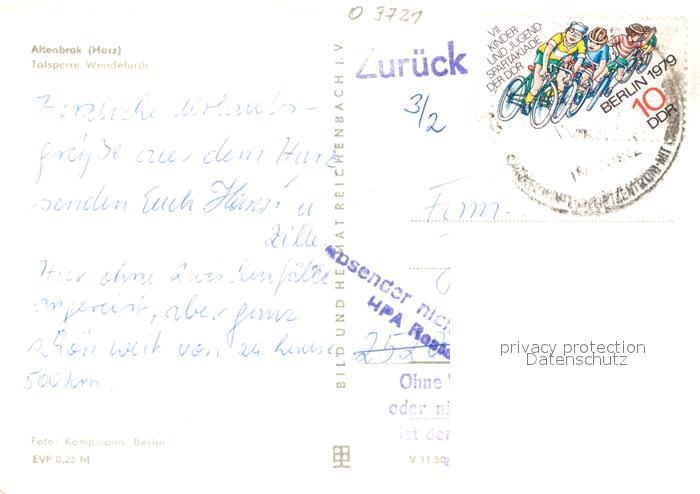 O 3721
Altenbrak (Harz)
Talsperre Wendefurth
Herzliche Urlaubs-
grüße aus dem Harz
senden Euch Hansi u
Zille
Hier ohne Zwischenfälle
angereist, aber ganz
schön weit von zu Hause
500 km.
Foto: Kampmann, Berlin
EVP 0,25 M
BILD UND HEIMAT REICHENBACH I. V.
V 11 50
Zurück
3/2
VII.
KINDER-
UND JUGEND-
SPARTAKIADE
DER DDR
BERLIN 1979
10
DDR
1979
Fam.
Absender nic
HPA Rosto
252
Ohne
oder ni
ist der
privacy protection
Datenschutz